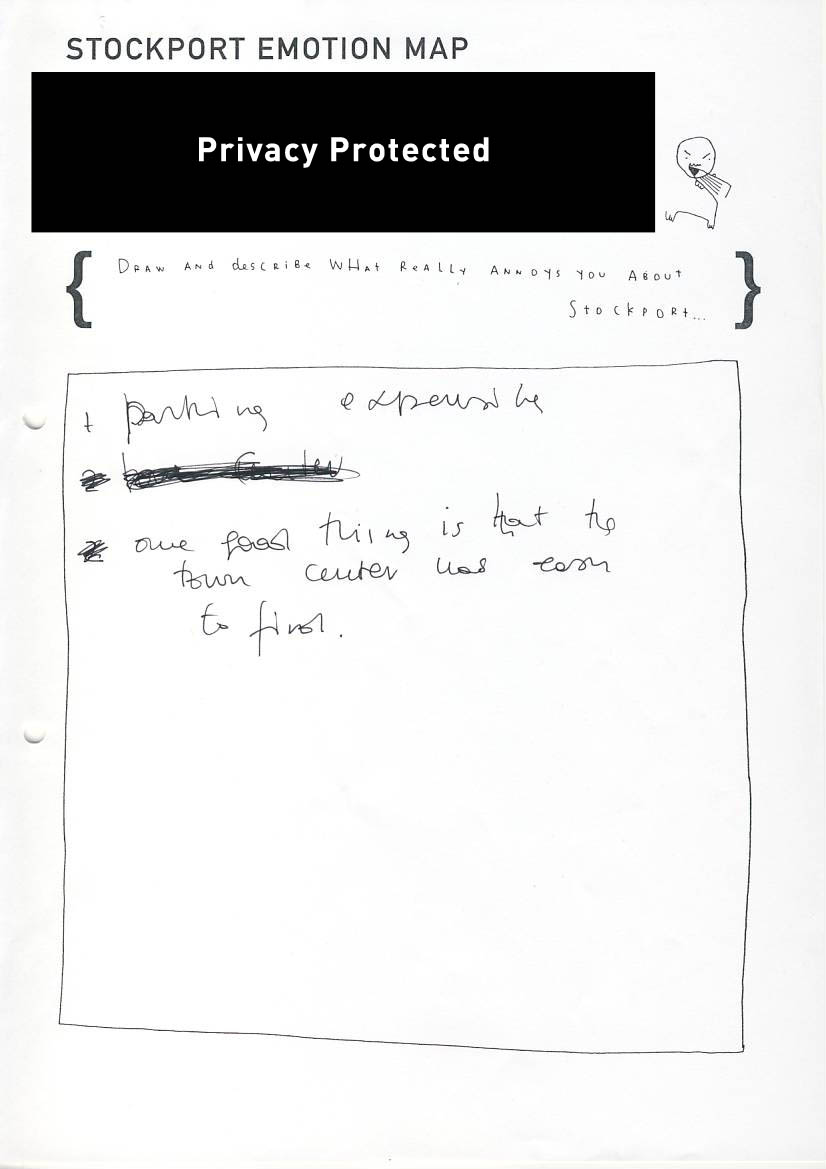 STOCKPORT EMOTION MAP
Privacy Protected
DRAW AND describe WHAt ReALLy ANNOYS YOU ABOUt
StOCkPORt...
1 parking expensive
one good thing is that the
town center was easy
to find.